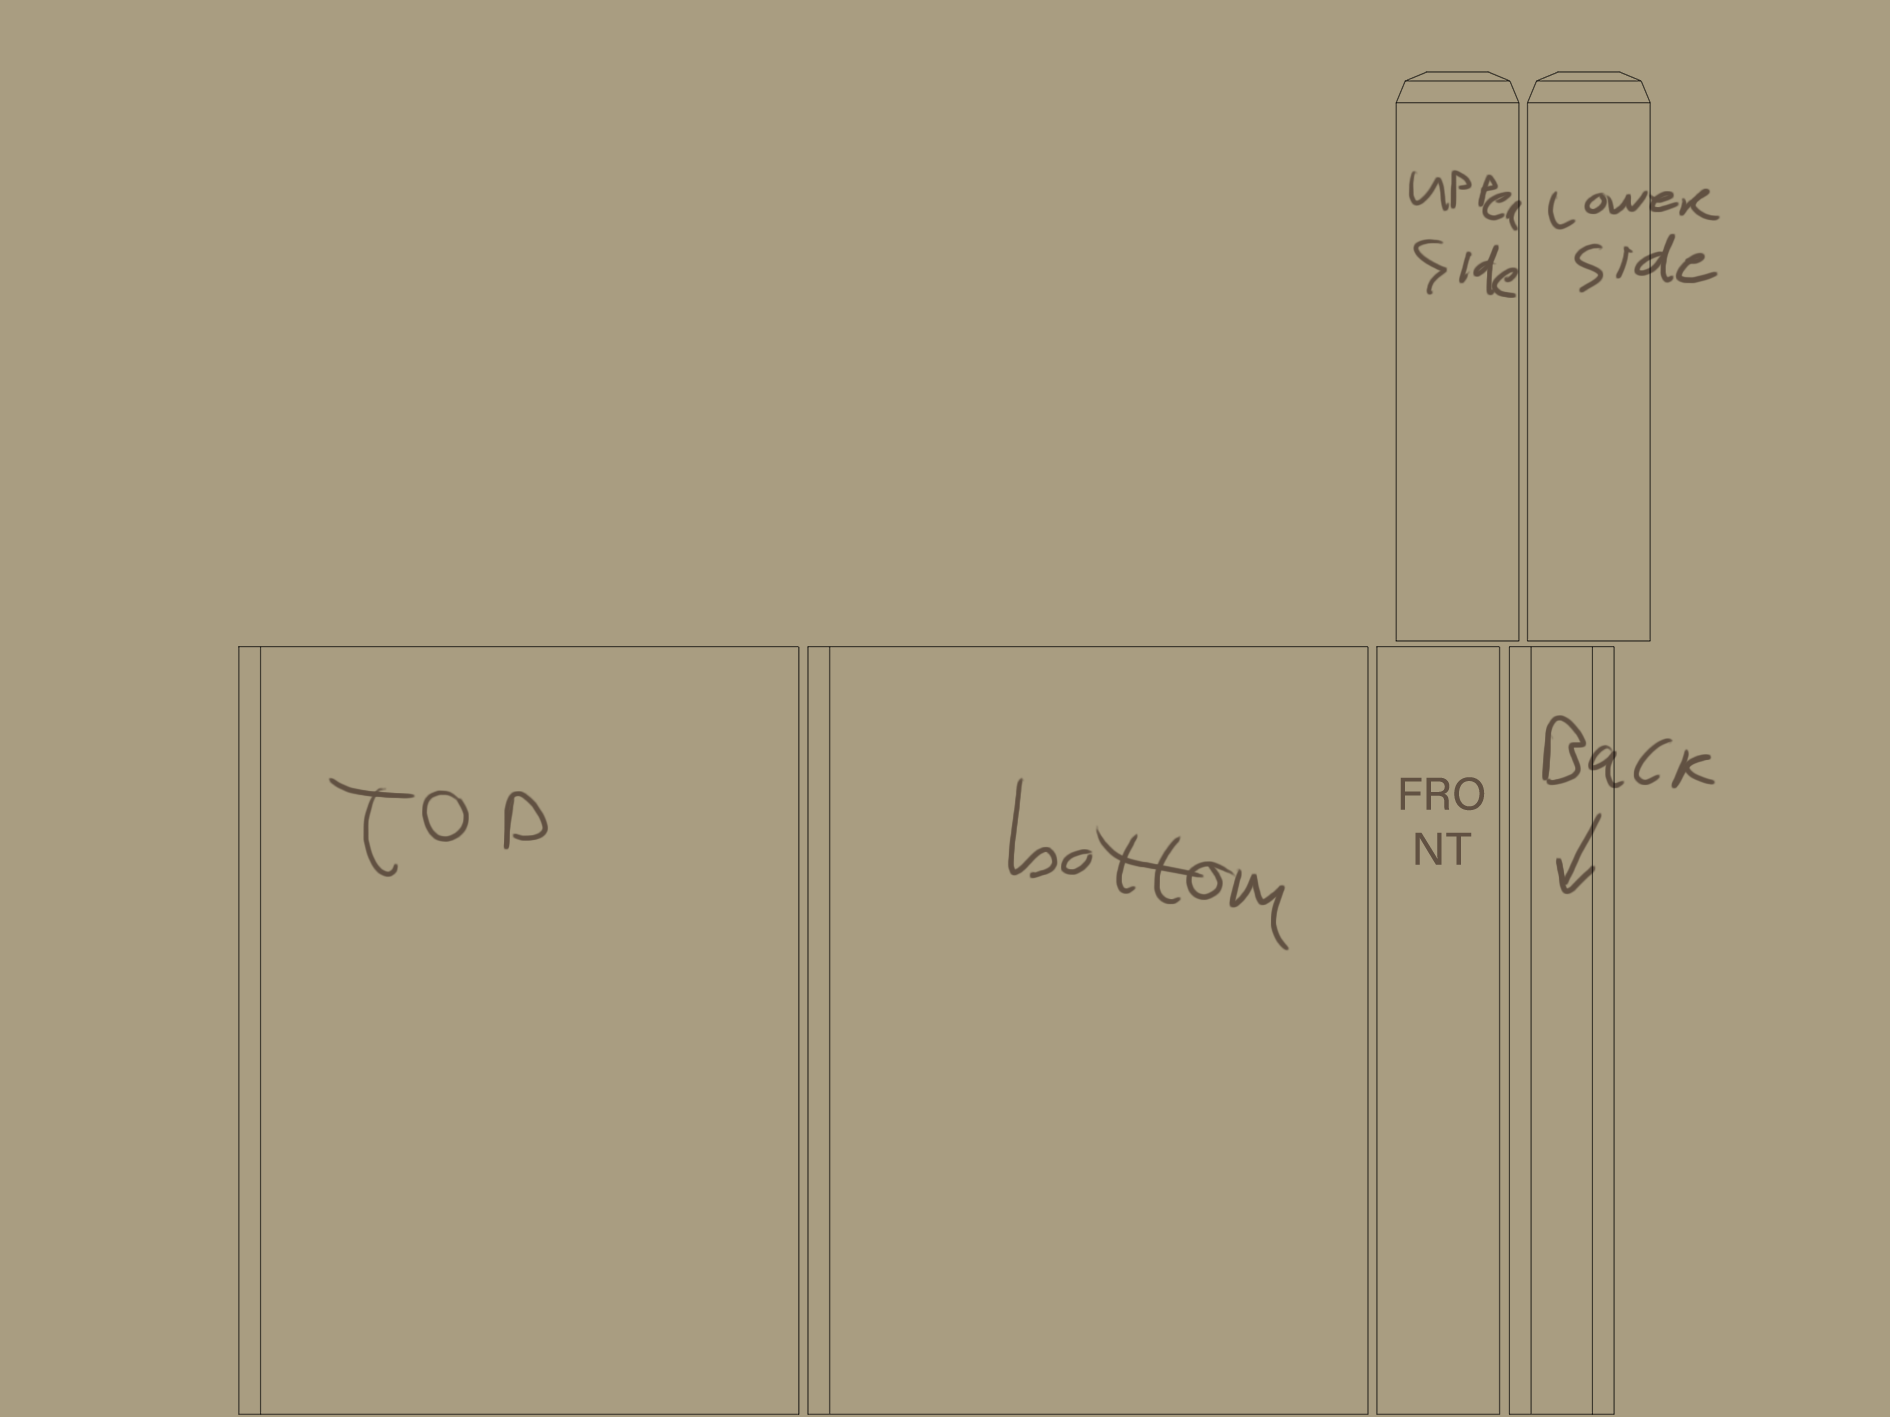 UPPER
Side
Lower
Side
TOP
bottom
FRO
NT
Back